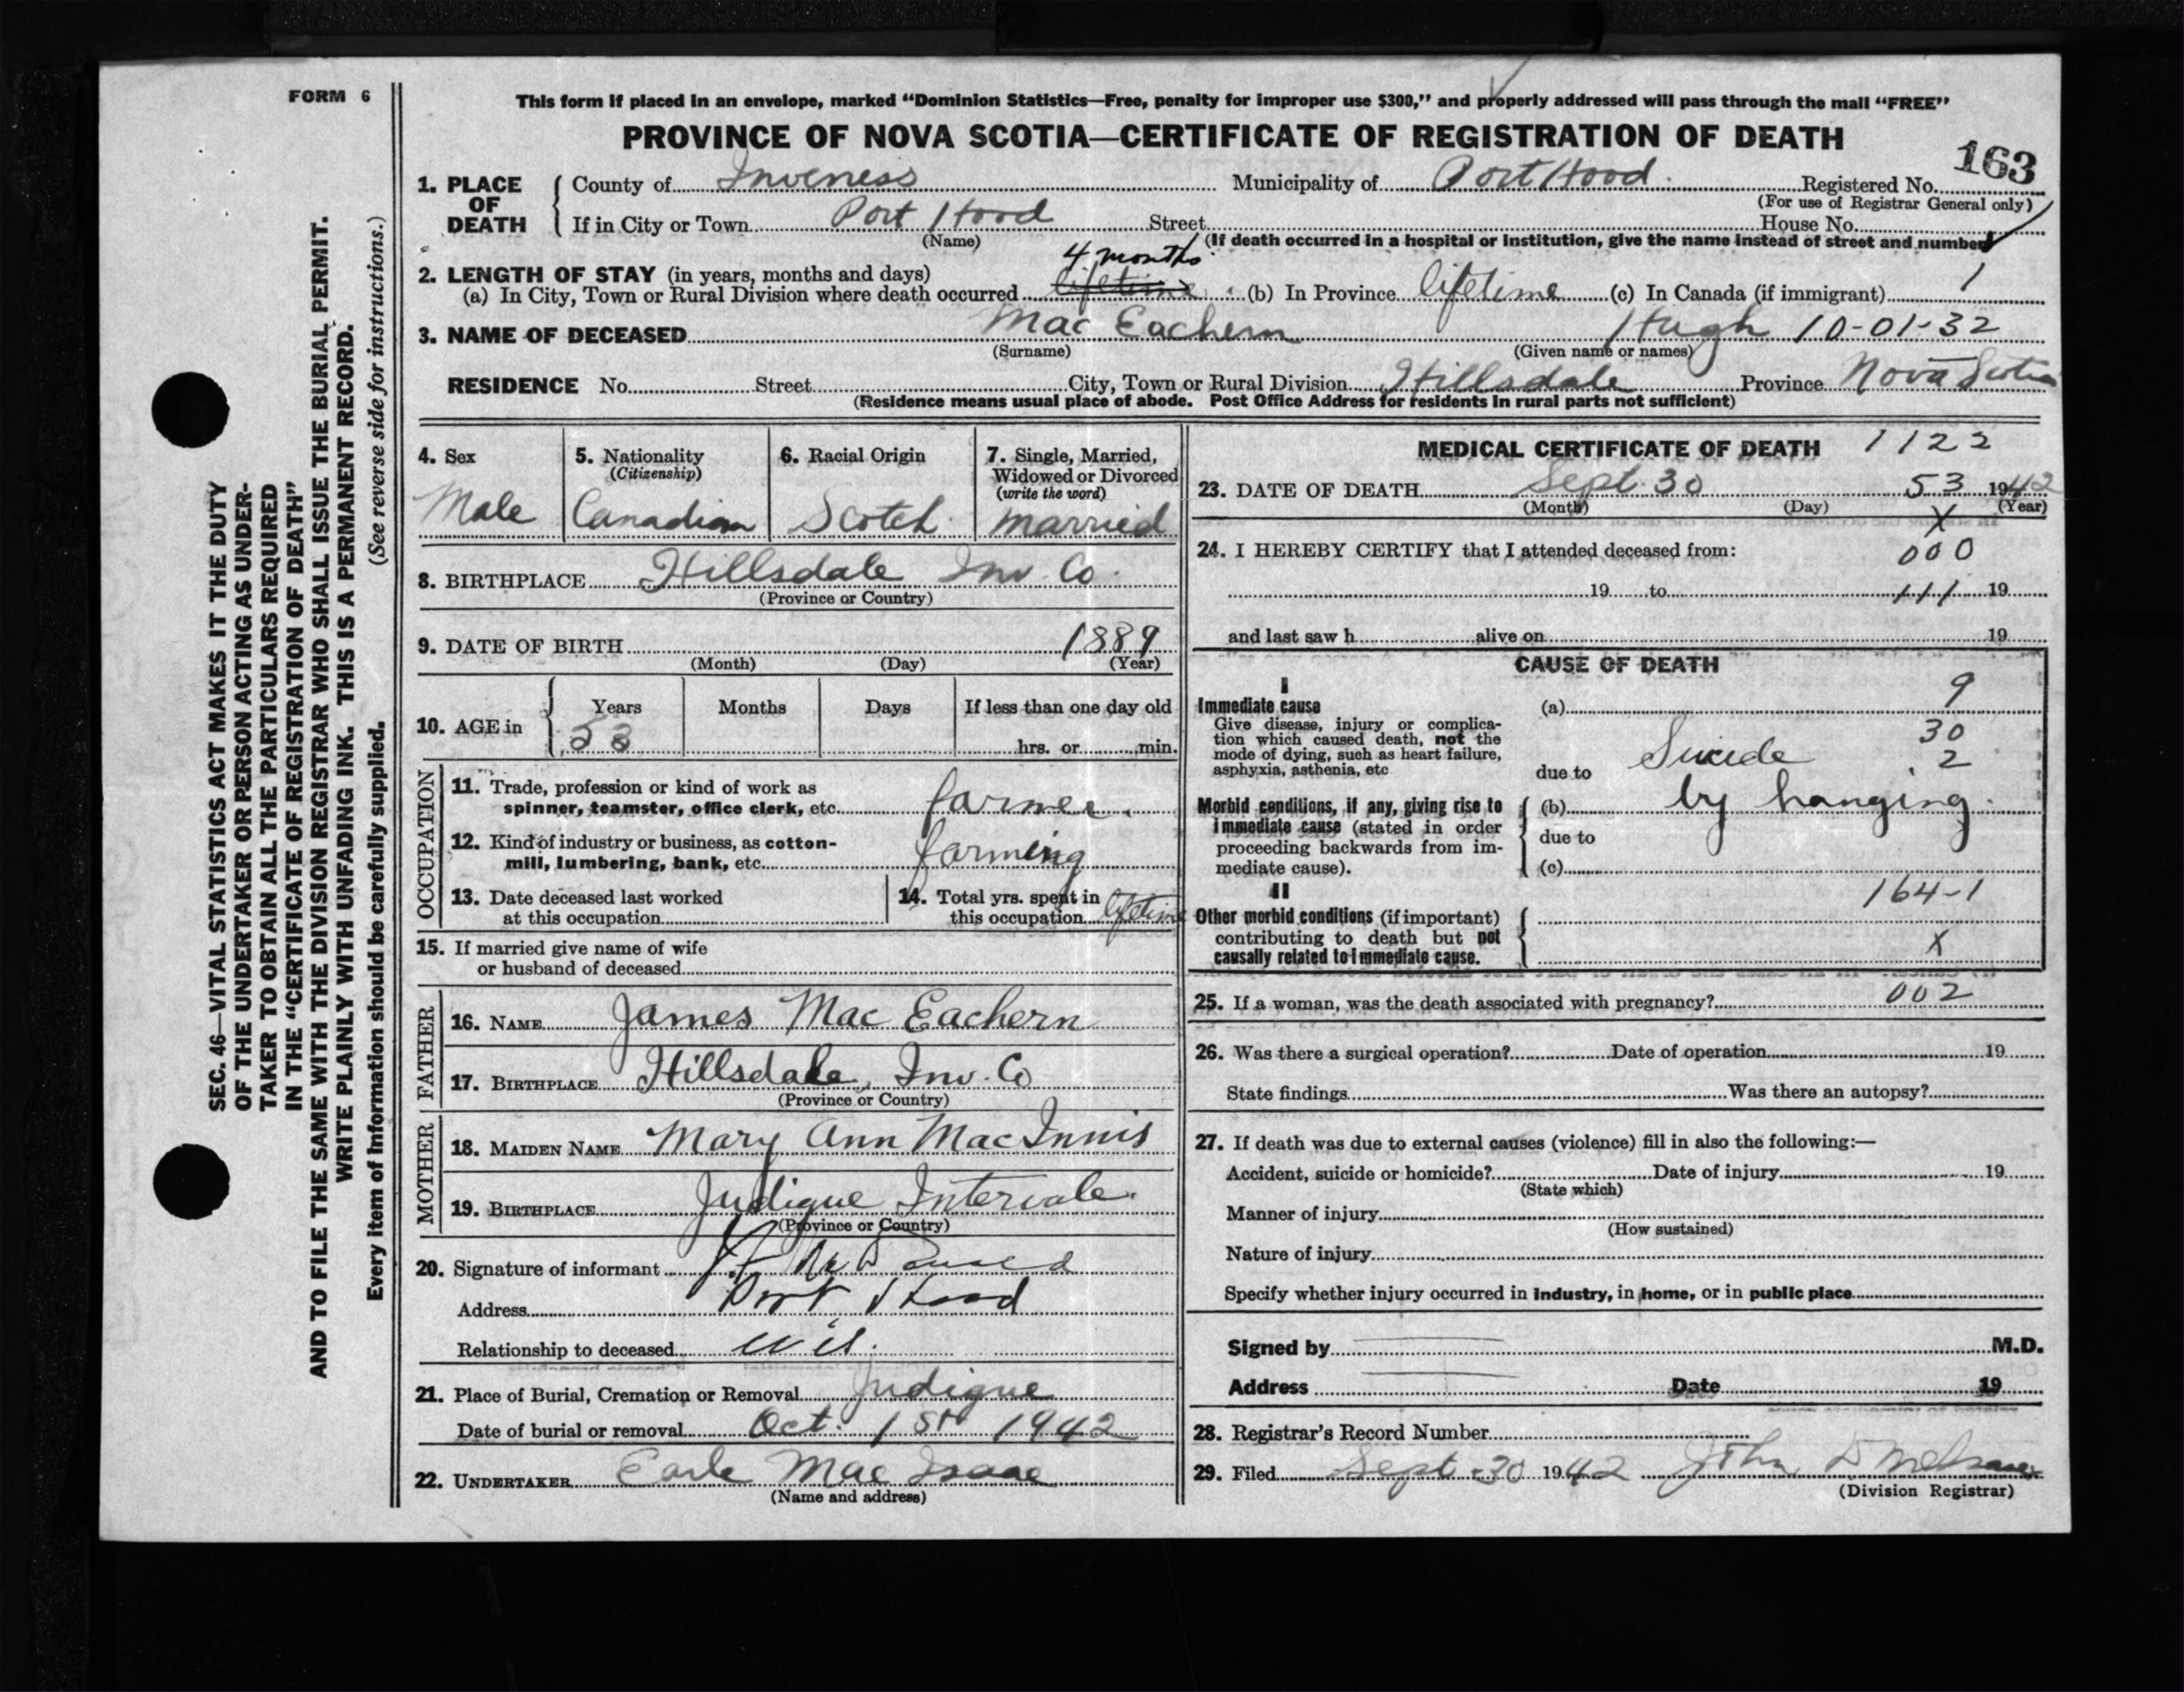 FORM 6
This form if placed in an envelope, marked “Dominion Statistics—Free, penalty for improper use $300,” and properly addressed will pass through the mail “FREE”
PROVINCE OF NOVA SCOTIA—CERTIFICATE OF REGISTRATION OF DEATH
163
1. PLACE OF DEATH
County of Inverness Municipality of Port Hood Registered No.
(For use of Registrar General only)
If in City or Town Port Hood Street House No.
(Name) (If death occurred in a hospital or institution, give the name instead of street and number)
4 months
2. LENGTH OF STAY (in years, months and days)
(a) In City, Town or Rural Division where death occurred lifetime (b) In Province lifetime (c) In Canada (if immigrant) 1
3. NAME OF DECEASED Mac Eachern Hugh 10-01-32
(Surname) (Given name or names)
RESIDENCE No. Street City, Town or Rural Division Hillsdale Province Nova Scotia
(Residence means usual place of abode. Post Office Address for residents in rural parts not sufficient)
4. Sex
Male
5. Nationality
(Citizenship)
Canadian
6. Racial Origin
Scotch
7. Single, Married,
Widowed or Divorced
(write the word)
married
8. BIRTHPLACE Hillsdale Inv. Co.
(Province or Country)
9. DATE OF BIRTH 1889
(Month) (Day) (Year)
10. AGE in
Years Months Days If less than one day old
53 hrs. or min.
OCCUPATION
11. Trade, profession or kind of work as
spinner, teamster, office clerk, etc. farmer.
12. Kind of industry or business, as cotton-
mill, lumbering, bank, etc. farming
13. Date deceased last worked
at this occupation
14. Total yrs. spent in
this occupation lifetime
15. If married give name of wife
or husband of deceased
FATHER
16. NAME James Mac Eachern
17. BIRTHPLACE Hillsdale, Inv. Co
(Province or Country)
MOTHER
18. MAIDEN NAME Mary Ann MacInnis
19. BIRTHPLACE Judique Intervale.
(Province or Country)
20. Signature of informant
Address Port Hood
Relationship to deceased
21. Place of Burial, Cremation or Removal Judique
Date of burial or removal Oct. 1st 1942
22. UNDERTAKER Earle Mac Isaac
(Name and address)
MEDICAL CERTIFICATE OF DEATH 1122
23. DATE OF DEATH Sept. 30 53 1942
(Month) (Day) (Year)
X
24. I HEREBY CERTIFY that I attended deceased from: 000
19 to 111 19
and last saw h alive on 19
CAUSE OF DEATH
I
Immediate cause
Give disease, injury or complica-
tion which caused death, not the
mode of dying, such as heart failure,
asphyxia, asthenia, etc
(a) 9
30
due to Suicide 2
Morbid conditions, if any, giving rise to
immediate cause (stated in order
proceeding backwards from im-
mediate cause).
(b) by hanging.
due to
(c)
II
164-1
Other morbid conditions (if important)
contributing to death but not
causally related to immediate cause.
X
25. If a woman, was the death associated with pregnancy? 002
26. Was there a surgical operation? Date of operation 19
State findings Was there an autopsy?
27. If death was due to external causes (violence) fill in also the following:—
Accident, suicide or homicide? Date of injury 19
(State which)
Manner of injury
(How sustained)
Nature of injury
Specify whether injury occurred in industry, in home, or in public place
Signed by M.D.
Address Date 19
28. Registrar’s Record Number
29. Filed Sept. 30 1942 John D
(Division Registrar)
SEC. 46—VITAL STATISTICS ACT MAKES IT THE DUTY
OF THE UNDERTAKER OR PERSON ACTING AS UNDER-
TAKER TO OBTAIN ALL THE PARTICULARS REQUIRED
IN THE “CERTIFICATE OF REGISTRATION OF DEATH”
AND TO FILE THE SAME WITH THE DIVISION REGISTRAR WHO SHALL ISSUE THE BURIAL PERMIT.
WRITE PLAINLY WITH UNFADING INK. THIS IS A PERMANENT RECORD.
Every item of information should be carefully supplied. (See reverse side for instructions.)